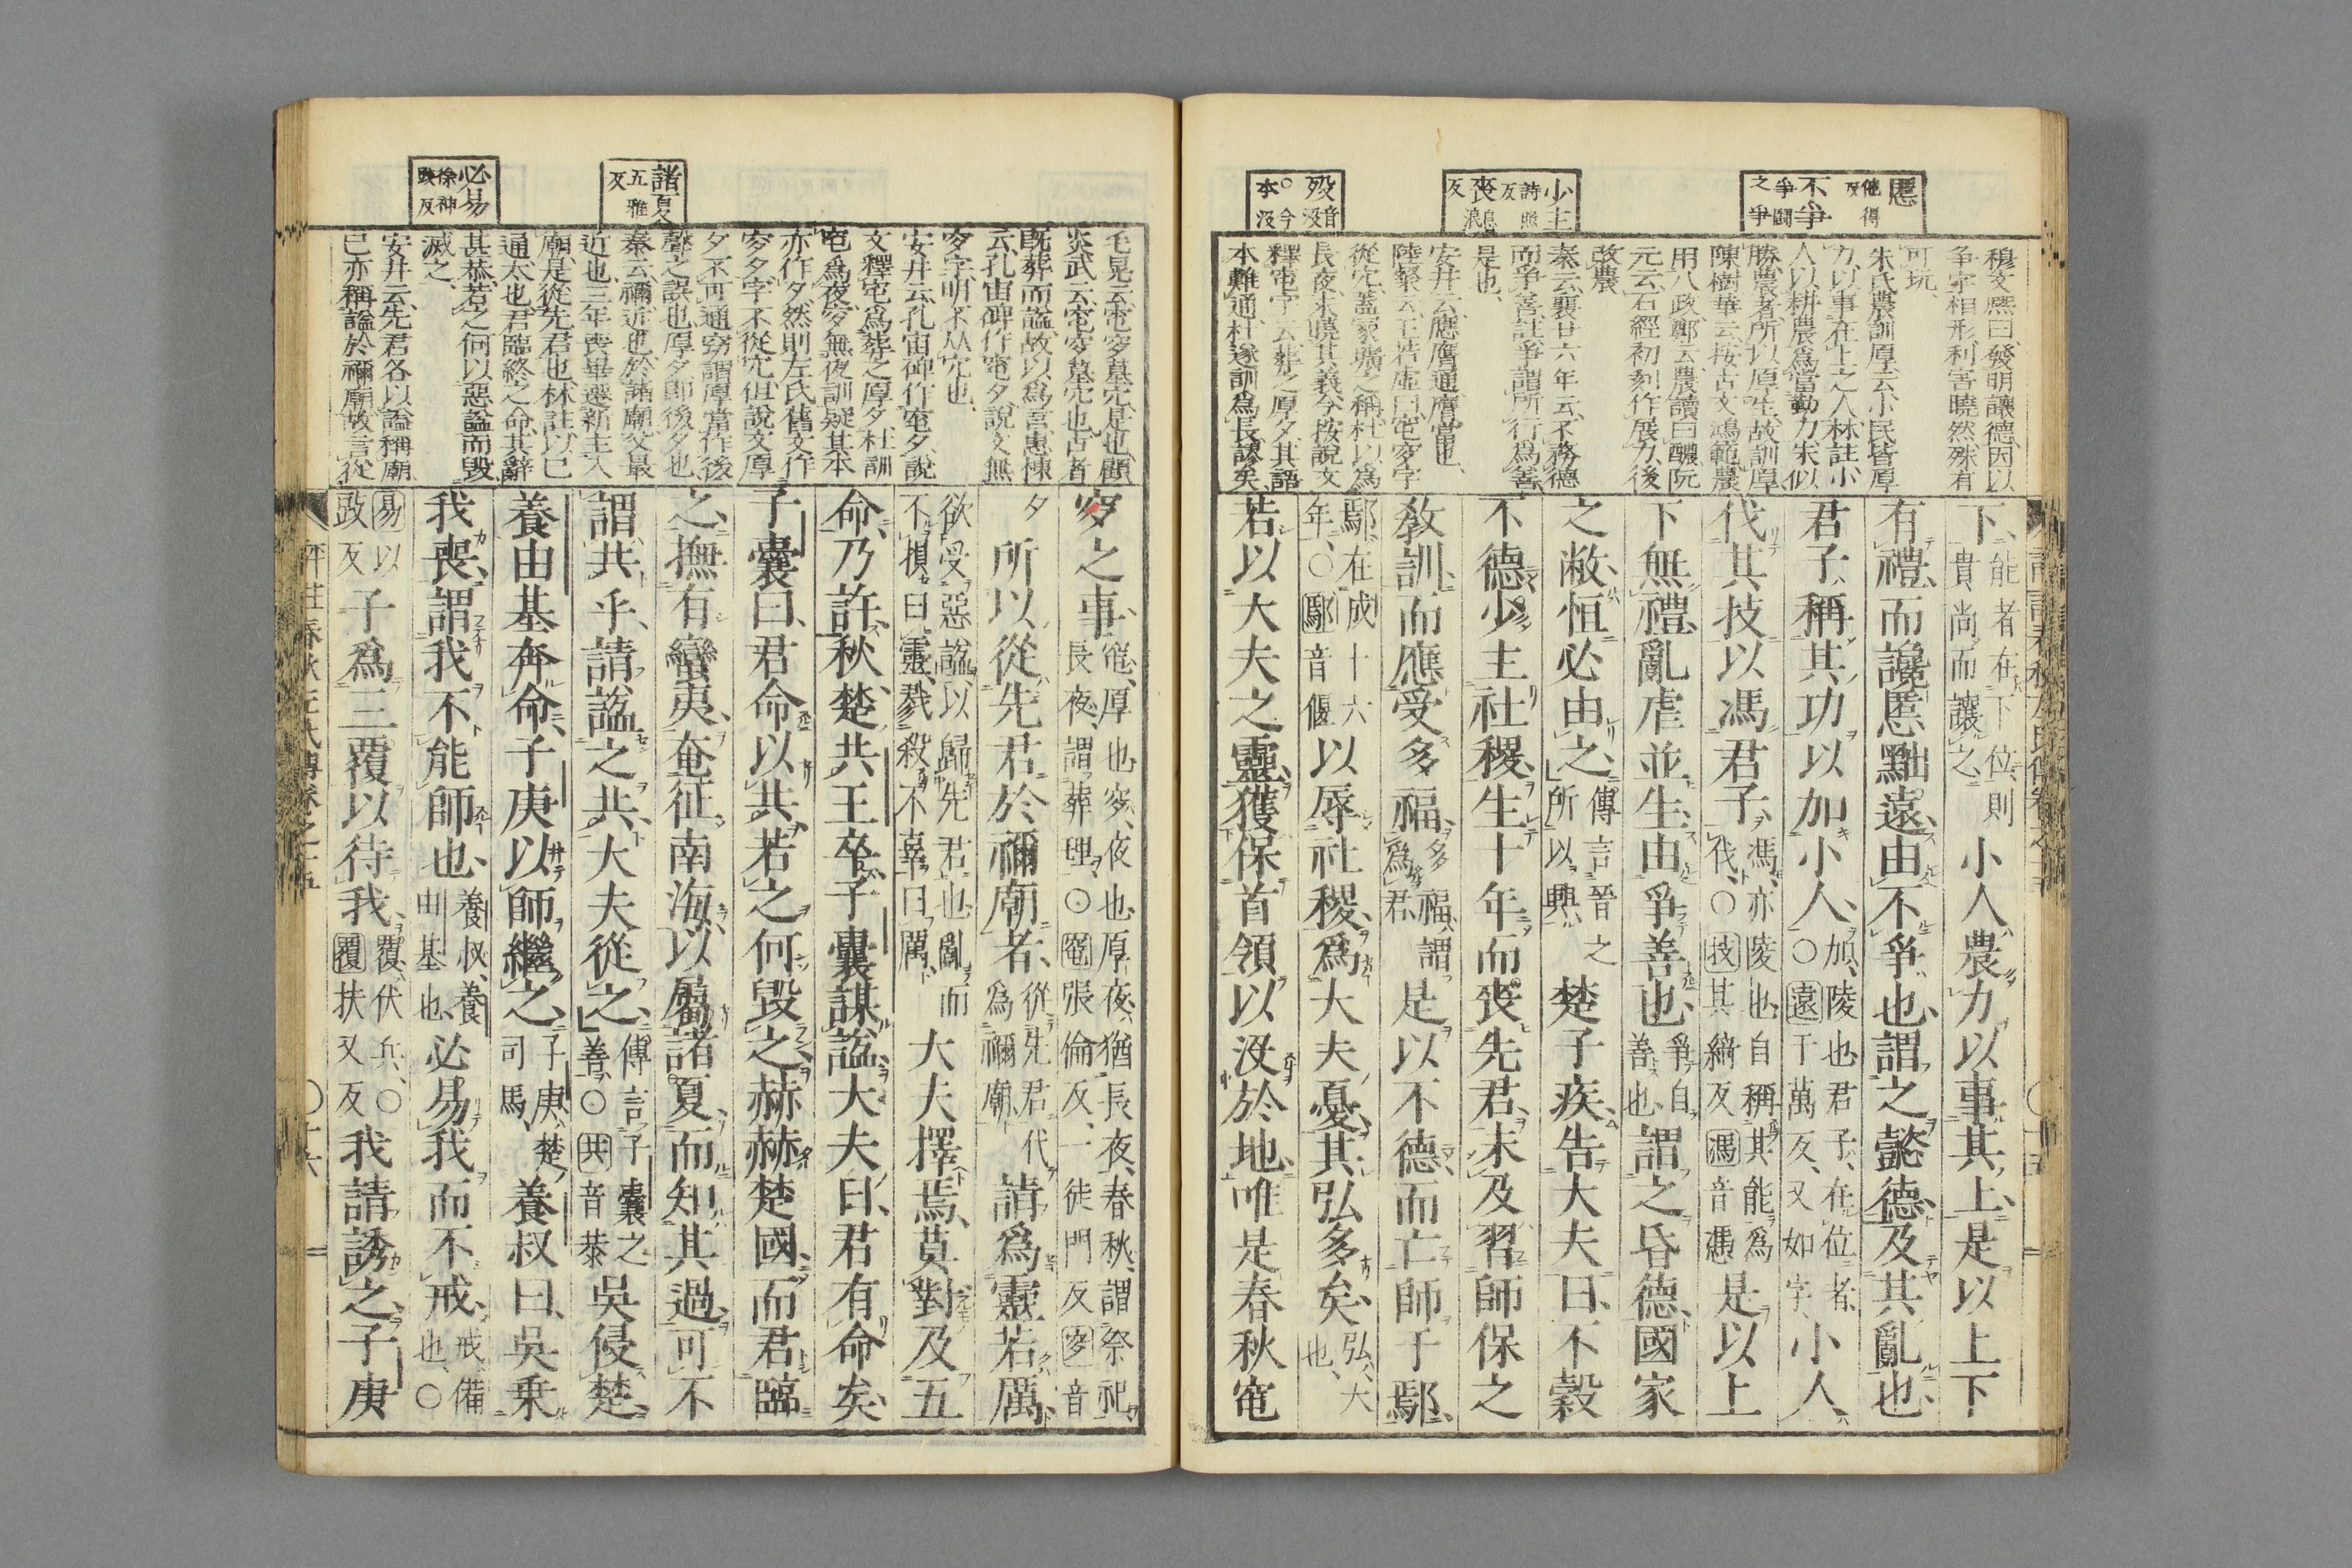 慝 他得反
不爭 爭鬪之爭
少主 詩照反 喪 息浪反
歿 音沒 ○今本沒
穆文熙曰、發明讓德因以
爭字相形、利害曉然殊有
可玩、
朱氏農訓厚云小民皆厚
力以事在上之人林註小
人以耕農爲當勤力朱似
勝農者所以厚生故訓厚
陳樹華云按古文鴻範農
用八政鄭云農讀曰醲阮
元云石經初刻作展力後
改農
秦云襄廿六年云不務德
而爭善註爭謂所行爲善
是也、
安井云應膺通膺當也、
陸粲云王若虛曰窀穸字
從穴蓋冢壙之稱杜以爲
長夜未曉其義今按說文
釋窀字云葬之厚夕其語
本難通杜遂訓爲長謬矣
下、能者在下位、則貴尚而讓之、小人農力以事其上、是以上下
有禮、而讒慝黜遠、由不爭也、謂之懿德、及其亂也、
君子稱其功以加小人、加、陵也、君子、在位者、○遠于萬反、又如字、小人
伐其技以馮君子、馮、亦陵也、自稱其能爲伐、○技其綺反馮音憑是以上
下無禮、亂虐並生、由爭善也、爭自善也、謂之昏德、國家
之敝、恒必由之、傳言晉之所以興、楚子疾、告大夫曰、不穀
不德、少主社稷、生十年而喪先君、未及習師保之
教訓、而應受多福、多福、謂爲君、是以不德、而亡師于鄢、
鄢、在成十六年、○鄢音偃以辱社稷、爲大夫憂、其弘多矣、弘、大也、
若以大夫之靈、獲保首領以沒於地、唯是春秋窀
諸夏 五雅反
必易 徐神豉反
毛晃云窀穸墓穴是也顧
炎武云窀穸墓穴也古者
既葬而謚故以爲言惠棟
云孔宙碑作窀夕說文無
穸字明不从穴也、
安井云孔宙碑作窀夕說
文釋窀爲葬之厚夕杜訓
窀爲夜夕無夜訓疑其本
亦作夕然則左氏舊文作
穸夕字不從穴但說文厚
夕不可通竊謂厚當作後
聲之誤也厚夕即後夕也
秦云禰近也於諸廟父最
近也三年喪畢遷新主入
廟是從先君也林註以已
通太也君臨終之命其辭
甚恭若之何以惡謚而毀
滅之、
安井云先君各以謚稱廟
已亦稱謚於禰廟故言從
穸之事、窀、厚也穸、夜也、厚夜、猶長夜、春秋、謂祭祀、長夜、謂葬埋、○窀張倫反、一徒門反穸音
夕所以從先君於禰廟者、從先君代爲禰廟、請爲靈若厲、
欲受惡謚以歸先君也亂而不損曰靈、戮殺不辜曰厲、大夫擇焉、莫對、及五
命、乃許、秋、楚共王卒、子囊謀謚、大夫曰、君有命矣、
子囊曰、君命以共、若之何毀之、赫赫楚國、而君臨
之、撫有蠻夷、奄征南海、以屬諸夏、而知其過、可不
謂共乎、請謚之共、大夫從之、傳言子囊之善、○共音恭吳侵楚、
養由基奔命、子庚以師繼之、子庚、楚司馬、養叔曰、吳乗
我喪、謂我不能師也、養叔、養由基也、必易我而不戒、戒、備也、○
易以豉反子爲三覆以待我、覆、伏兵、○覆扶又反我請誘之、子庚